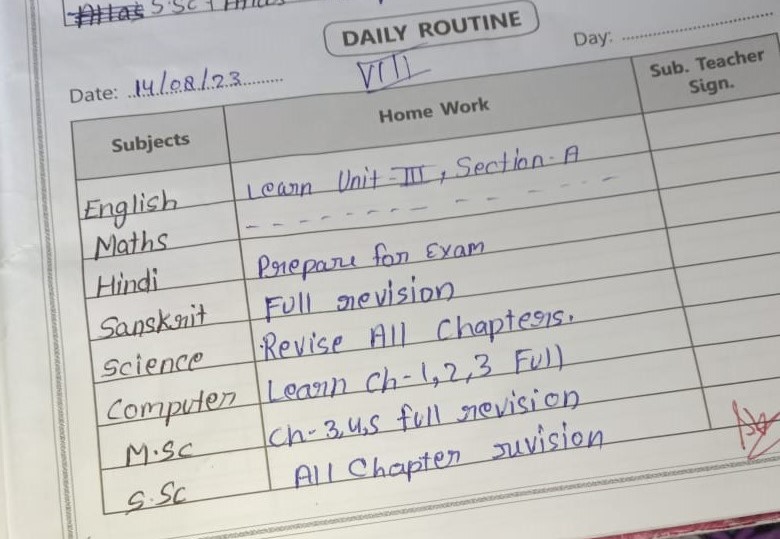 Atlas S.SC
DAILY ROUTINE
VIII
Day:
Date: 14/08/23
Subjects Home Work Sub. Teacher Sign.
English Learn Unit-III, Section-A
Maths - - - - - - - - - - -
Hindi Prepare for Exam
Sanskrit Full revision
Science Revise All Chapters.
Computer Learn Ch-1,2,3 Full
M.SC Ch-3,4,5 full revision
S.SC All Chapter ruvision